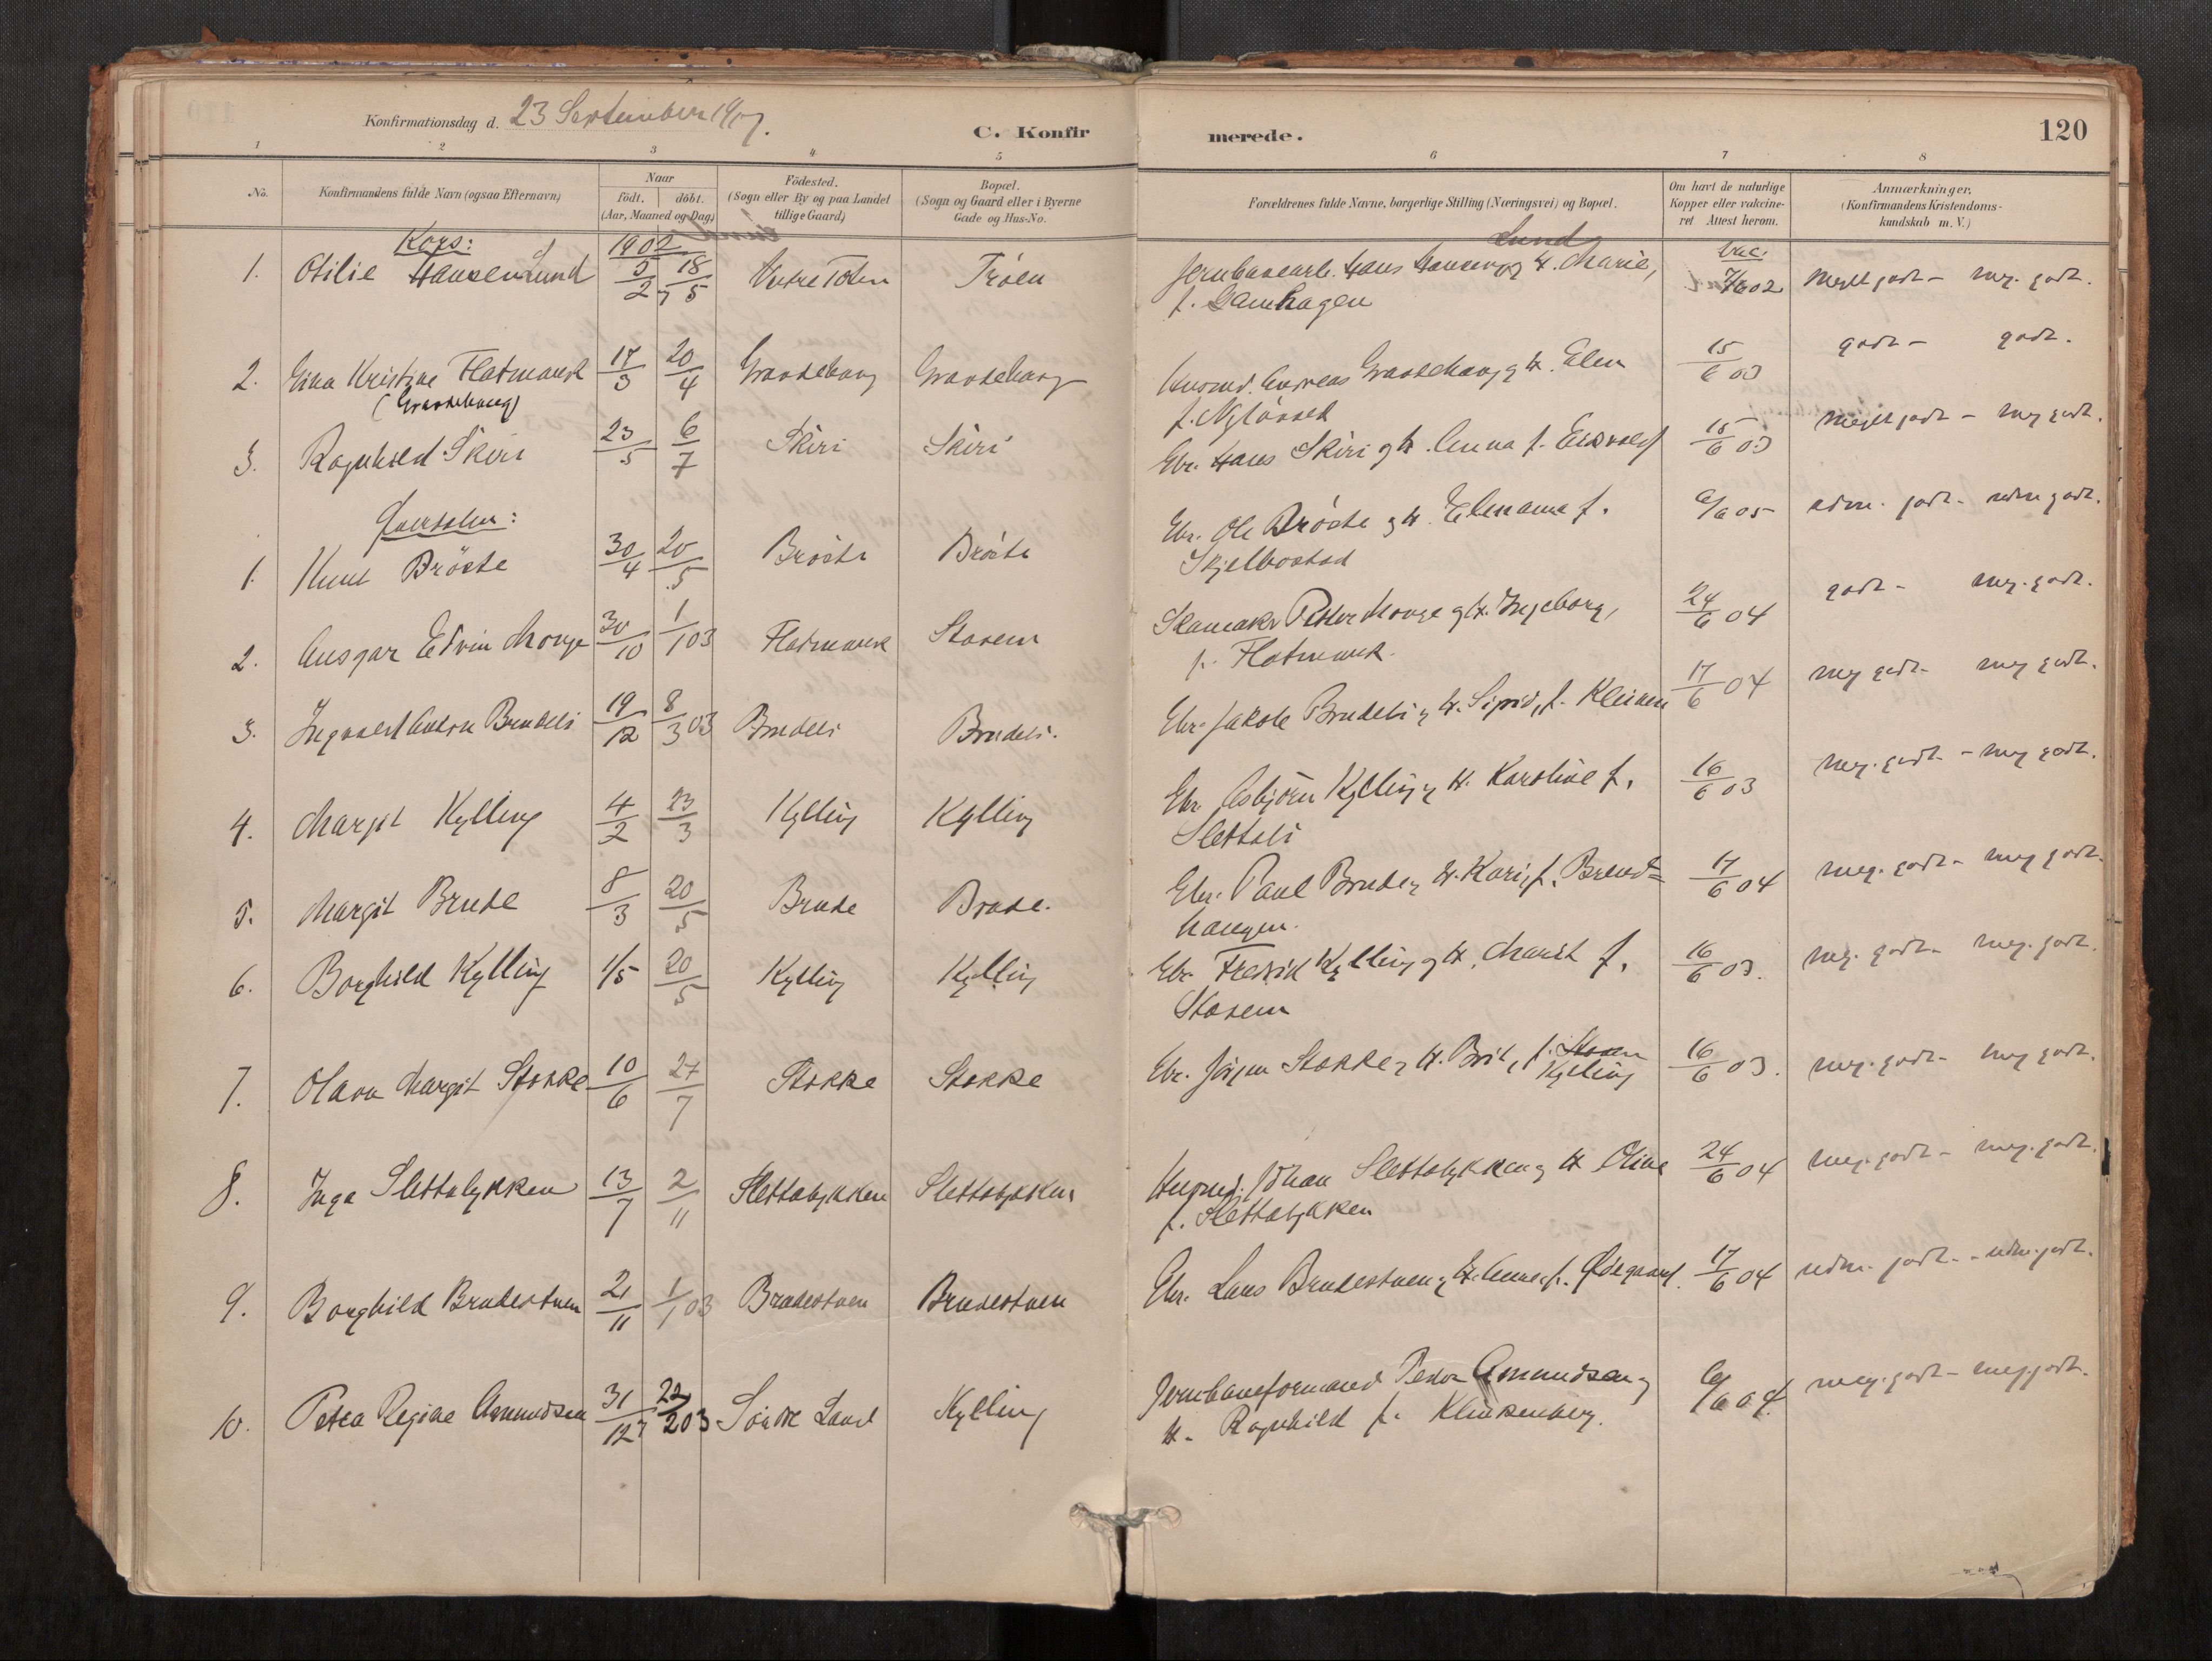 Konfirmationsdag d. 23 September 1917.
C. Konfirmerede.
120
1 2 3 4 5 6 7 8
No.
Konfirmandens fulde Navn (ogsaa Efternavn)
Naar
födt. döbt.
(Aar, Maaned og Dag)
Födested.
(Sogn eller By og paa Landet
tillige Gaard)
Bopæl.
(Sogn og Gaard eller i Byerne
Gade og Hus-No.
Forældrenes fulde Navne, borgerlige Stilling (Næringsvei) og Bopæl.
Om havt de naturlige
Kopper eller vakcine-
ret Attest herom.
Anmærkninger.
(Konfirmandens Kristendoms-
kundskab m. V.)
Kors:
1902
Lund
vac.
1. Otilie Hansen Lund 5/2 18/5 Vestre Toten Trøen Jernbanearb. Hans Hansen og H. Marie, 7/6 02 Meget godt - meg. godt.
f. Lamhagen
2. Gina Kristine Flatmark 17/3 20/4 Gravdehaug Gravdehaug Husmd. Andreas Gravdehaug og H. Elen 15/6 03 godt - godt.
(Gravdehaug)
f. Nyløsset
3. Ragnhild Skiri 23/5 6/7 Skiri Skiri Ebr. Hans Skiri og H. Anna f. 15/6 03 Meget godt - meg godt.
Øverdalen:
1. Knut Brøste 30/4 20/5 Brøste Brøste Ebr. Ole Brøste og H. Elmanna f. 9/6 05 udm. godt - udm godt.
Skjelbostad
2. Ansgar Edvin Monge 30/10 1/1 03 Flatmark Stavem Skomaker Peder Monge og H. Ingeborg, 24/6 04 godt - meg. godt.
f. Flatmark.
3. Ingvald Anton Brudeli 19/12 8/3 03 Brudeli Brudeli. Ebr. Jakob Brudeli og H. Sigrid, f. Kleiven 17/6 04 meg godt - meg godt.
4. Margit Kylling 4/2 23/3 Kylling Kylling Ebr. Asbjørn Kylling og H. Karoline f. 16/6 03 meg. godt - meg godt.
Slettali
5. Margit Brude 8/3 20/5 Brude Brude. Ebr. Paul Brude og H. Kari, f. Brend= 17/6 04 meg. godt - meg godt.
haugen.
6. Borghild Kylling 1/5 20/5 Kylling Kylling Ebr. Fredrik Kylling og H. Marit f. 16/6 03. meg. godt - meg. godt.
Stavem
7. Olava Margit Stokke 10/6 27/7 Stokke Stokke Ebr. Jørgen Stokke og H. Brit, f. Stavem 16/6 03. meg. godt - meg godt.
Kylling
8. Inga Slettaløkken 13/7 2/11 Slettaløkken Slettaløkken Husmd. Johan Slettaløkken og H. Oline 24/6 04 meg. godt - meg. godt.
f. Slettaløkken
9. Borghild Brudestuen 21/11 1/1 03 Brudestuen Brudestuen Ebr. Lars Brudestuen og H. Anne, f. Ødegaard. 17/6 04 udm. godt - udm. godt.
10. Petra Regine Amundsen 31/12 22/2 03 Søndre Land Kylling Jernbaneformand Peder Amundsen og 9/6 04. meg. godt - meg godt.
H. Ragnhild f. Klinkenberg.